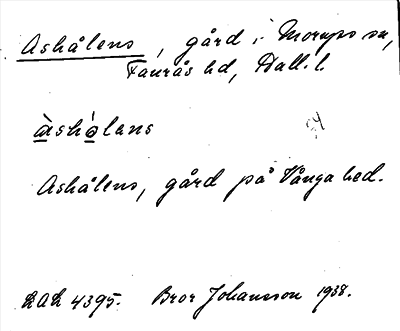 Ashålens, gård i Morups sn,
Faurås hd, Hall. l.
àshòlans
Ashålens, gård på Vånga hed.
LAL 4395. Bror Johansson 1938.